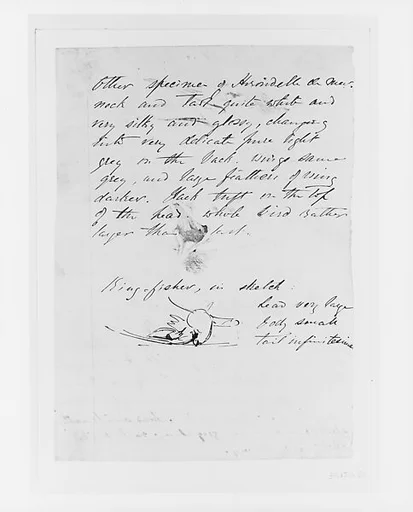 Other specimen of Hirondelle de mer.
neck and tail quite white and
very silky and glossy, changing
into very delicate pure light
grey on the back. wings same
grey, and large feathers of wing
darker. Black tuft on the top
of the head whole bird rather
larger than last.
King-fisher, in sketch:
head very large
body small
tail infinitesime